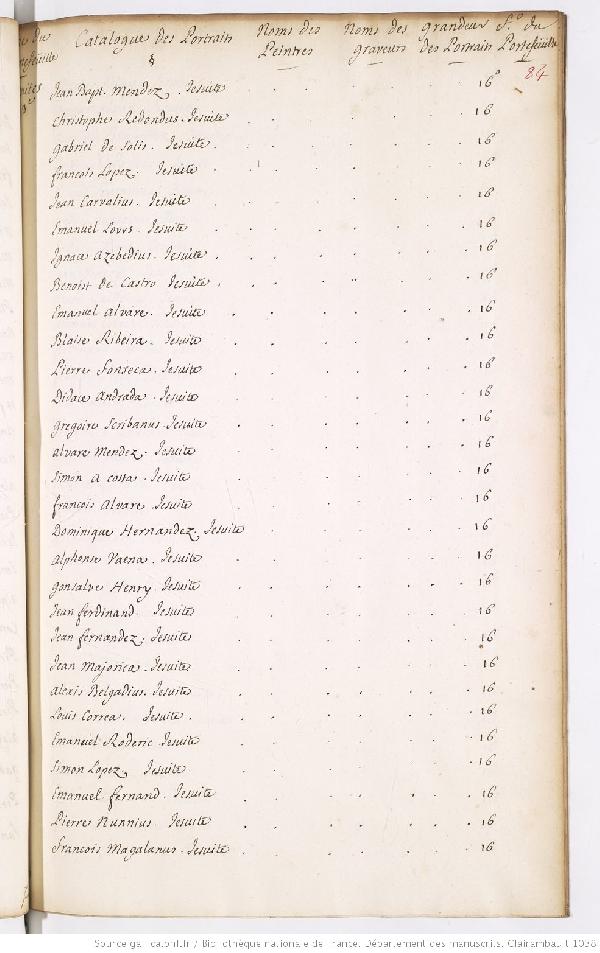 Catalogue des Portraits Noms des Peintres Noms des graveurs grandeur des Portraits fo. du Portefeuille
84
Jean Bapt. Mendez. Jesuite 16°
Christophe Redondus. Jesuite 16
gabriel de Solis. Jesuite 16
françois Lopez. Jesuite 16
Jean Carvalius. Jesuite 16
Emanuel Jesuite 16
Ignace Azebedius. Jesuite 16
Benoist de Castro Jesuite 16
Emanuel Alvare. Jesuite 16
Blaise Ribeira. Jesuite 16
Pierre Fonseca. Jesuite 16
Didace Andrada. Jesuite 16
gregoire Scribanus. Jesuite 16
alvare Mendez. Jesuite 16
Simon A costa. Jesuite 16
françois Alvare. Jesuite 16
Dominique Hernandez. Jesuite 16
Alphonse Vaena. Jesuite 16
gonsalve Henry. Jesuite 16
Jean ferdinand. Jesuite 16
Jean fernandez. Jesuite 16
Jean Majorica. Jesuite 16
Alexis Belgadius. Jesuite 16
Louis Correa. Jesuite 16
Emanuel Roderic. Jesuite 16
Simon Lopez. Jesuite 16
Emanuel fernand. Jesuite 16
Pierre Nunnius. Jesuite 16
François Magalanus. Jesuite 16
Source gallica.bnf.fr / Bibliothèque nationale de France. Département des manuscrits. Clairambault 1038